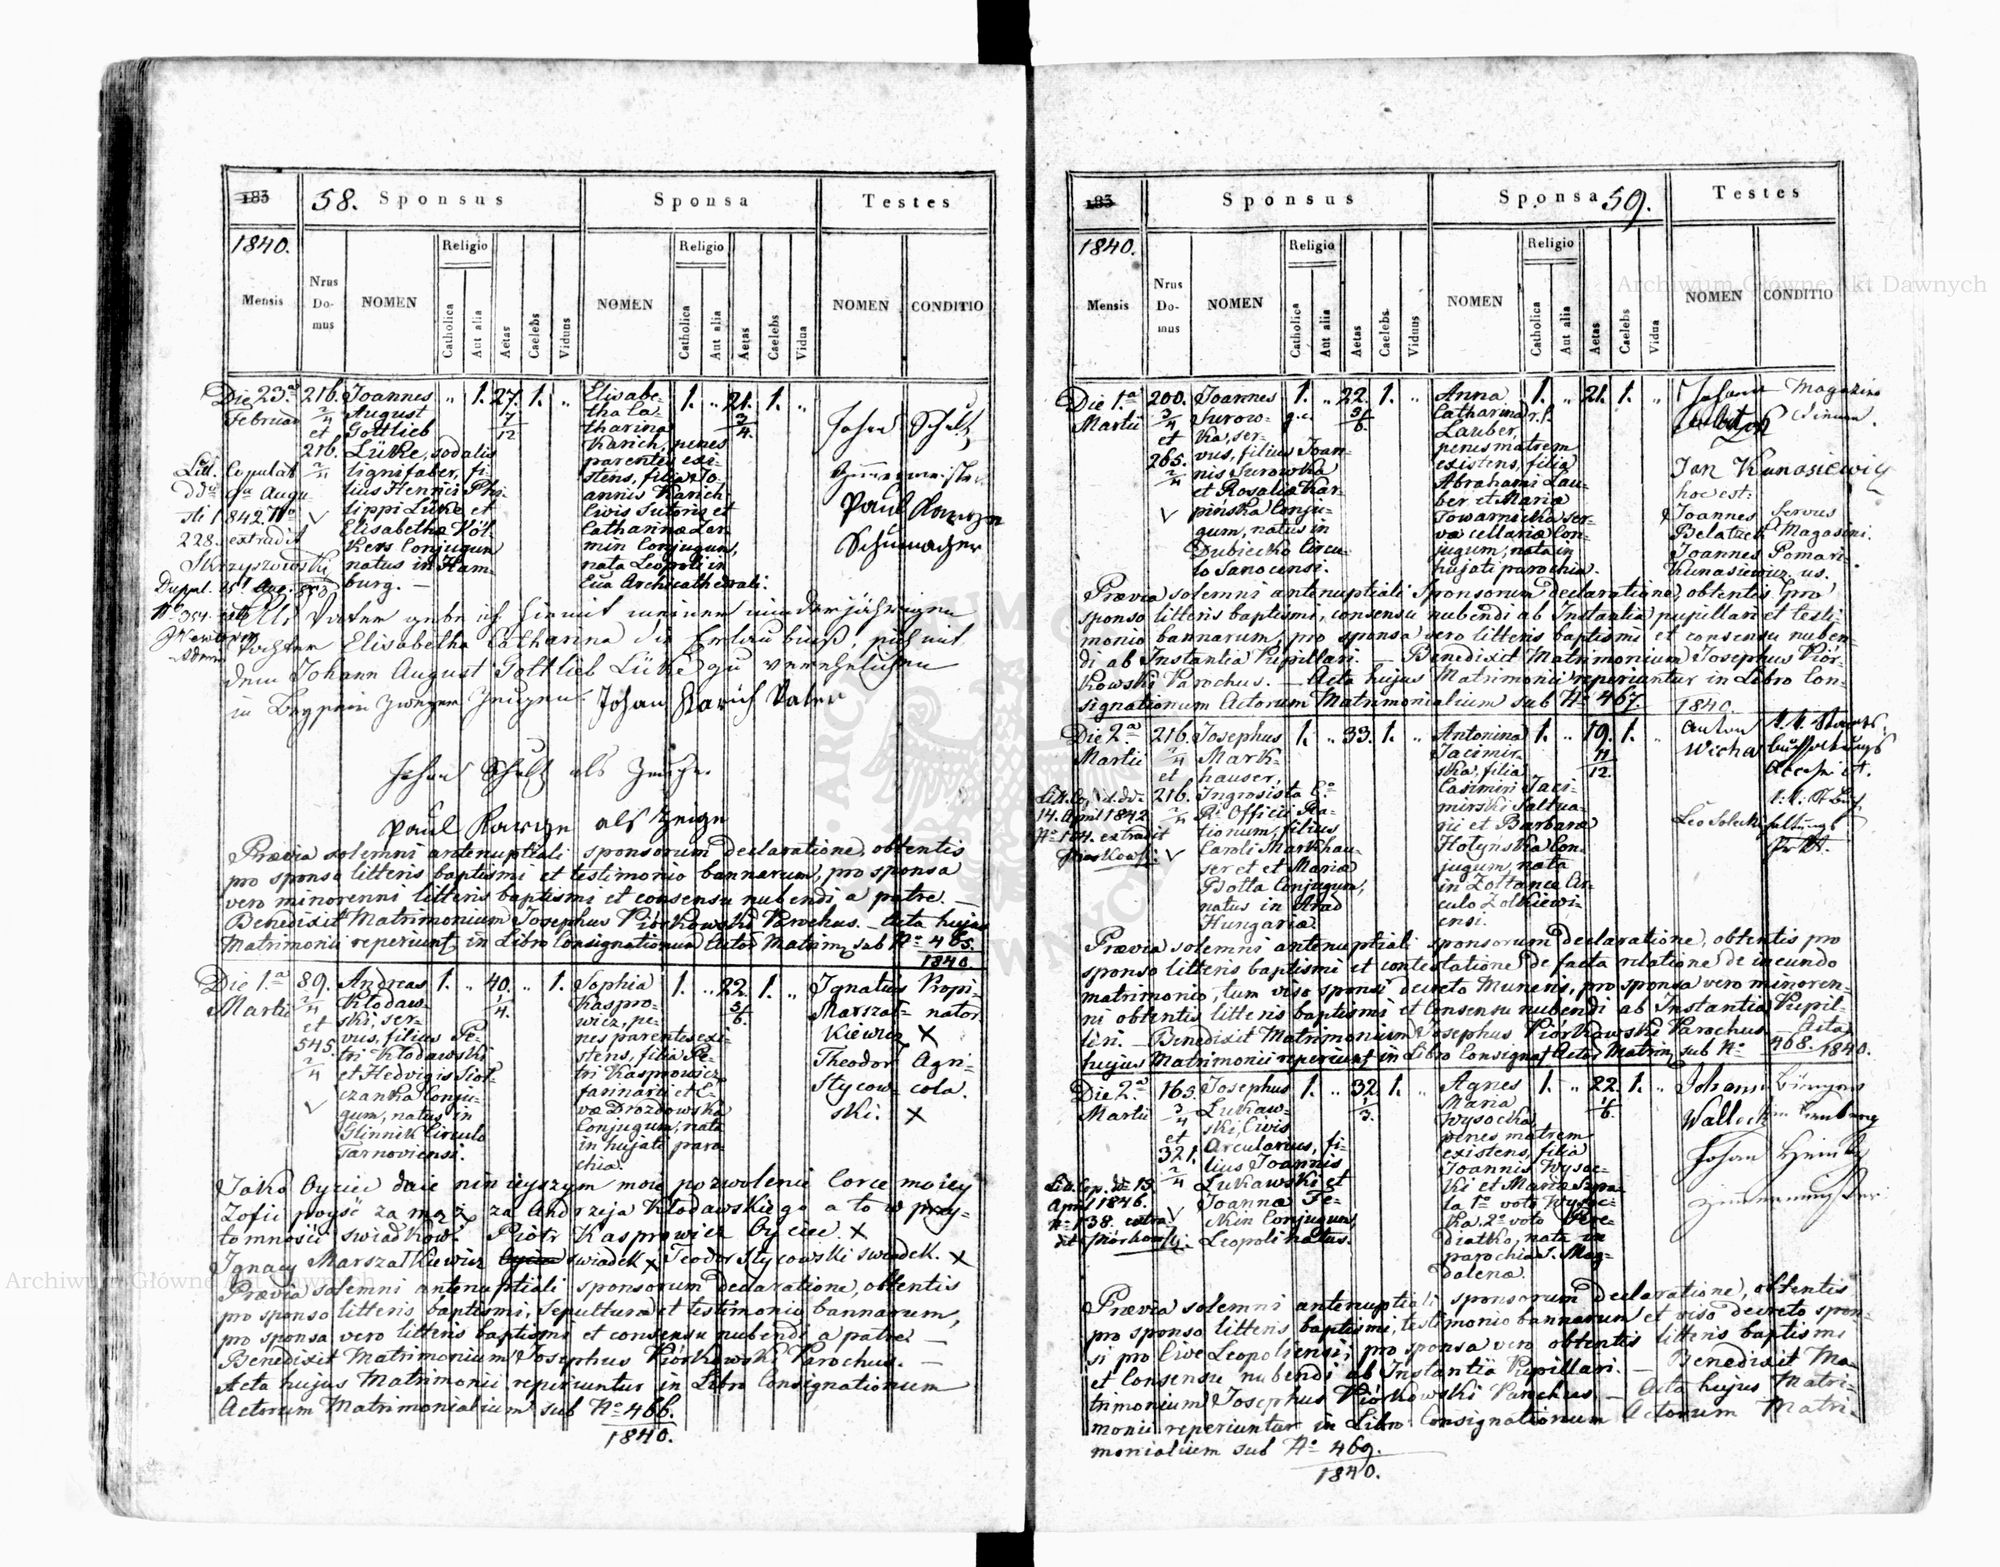 183 58. Sponsus Sponsa Testes
1840.
Mensis
Nrus Do-mus
NOMEN
Religio
Catholica
Aut alia
Aetas
Caelebs
Viduus
NOMEN
Religio
Catholica
Aut alia
Aetas
Caelebs
Vidua
NOMEN
CONDITIO
Die 23a
Februar
216. 2/4
et
216. 2/4
Joannes
August
Gottlieb
Lüke, sodalis
lignifaber, fi-
lius Henrici Phi-
lippi Lüke et
Elisabethæ Völ-
kers Conjugum
natus in Ham-
burg. —
" 1. 27. 7/12 1. "
Elisabe-
tha Ca-
tharina
Karich, penes
parentes exi-
stens, filia Jo-
annis Karich
Civis Sutoris et
Catharinæ Zer-
min Conjugum,
nata Leopoli in
Ecca Archicathedrali.
1. " 21. 3/4. 1. "
Johan Schultz
Zimmermeister
Paul
Schumacher
Litt. Copulat
ddto 9a Augu-
sti 1842 No
228. extradit
Als Vater gebe ich hiermit meiner minderjährigen
Tochter Elisabetha Catharina die Erlaubniß sich mit
dem Johann August Gottlieb Lüke zu verehelichen
in Beysein zweyer Zeugen. Johan Karich Vater
Johan Schultz als Zeuge.
Paul als Zeige
Prævia solemni antenuptiali sponsorum declaratione, obtentis
pro sponso litteris baptismi et testimonio bannorum, pro sponsa
vero minorenni litteris baptismi et consensu nubendi a patre. —
Benedixit Matrimonium Josephus Piórkowski Parochus. — Acta hujus
Matrimonii reperiunt. in Libro Consignationum Actor. Matrim. sub No 465.
1840.
Die 1a
Martii
89. 2/4
et
545. 2/4
Andreas
Kłodaw-
ski, ser-
vus, filius Pe-
tri Kłodawski
et Hedvigis Siol-
czanka Conju-
gum, natus in
Glinnik Circulo
Tarnoviensi.
1. " 40. 1/4. " 1.
Sophia
Kaspro-
wicz, pe-
nes parentes exi-
stens, filia Pe-
tri Kasprowicz
farinarii et E-
væ Drozdowska
Conjugum, nata
in hujati paro-
chia.
1. " 22. 3/6. 1. "
Ignatius Propi-
Marszał- nator.
kiewicz X
Theodor Agri-
Stycow- cola.
ski. X
Jako Oyciec daie ninieyszym moie pozwolenie Corce moiey
Zofii poyść za mąż za Andrzeja Kłodawskiego a to w przy-
tomności swiadków. Piotr Kasprowicz Oyciec X
Ignacy Marszałkiewicz swiadek X Teodor Stycowski swiadek. X
Prævia solemni antenuptiali sponsorum declaratione, obtentis
pro sponso litteris baptismi, sepulturæ et testimonio bannorum,
pro sponsa vero litteris baptismi et consensu nubendi a patre. —
Benedixit Matrimonium Josephus Piórkowski Parochus. —
Acta hujus Matrimonii reperiuntur in Libro Consignationum
Actorum Matrimonialium sub No 466.
1840.
183 Sponsus Sponsa 59. Testes
1840.
Mensis
Nrus Do-mus
NOMEN
Religio
Catholica
Aut alia
Aetas
Caelebs.
Viduus
NOMEN
Religio
Catholica
Aut alia
Aetas
Caelebs
Vidua
NOMEN
CONDITIO
Die 1a
Martii
200. 3/4
et
265. 2/4
Joannes
Surow-
ka, ser-
vus, filius Joan-
nis Surowka
et Rosaliæ Kar-
pinska Conju-
gum, natus in
Dubiecko Circu-
lo Sanocensi.
1. g.c. " 22. 3/6. 1. "
Anna
Catharina
Lauber,
penes matrem
existens, filia
Abrahami Lau-
ber et Mariæ
Towarnicka ser-
væ cellariæ Con-
jugum, nata in
hujati parochia.
1. r.l. " 21. 1. "
Johann Magazins
Diener.
Jan Kunasiewicz
hoc est:
Joannes servus
Belatzek Magasini.
Joannes Pomari-
Kunasiewicz. us.
Prævia solemni antenuptiali Sponsorum declaratione, obtentis pro
sponso litteris baptismi, consensu nubendi ab Instantia pupillari et testi-
monio bannorum, pro sponsa vero litteris baptismi et consensu nuben-
di ab Instantia Pupillari. — Benedixit Matrimonium Josephus Piór-
kowski Parochus. — Acta hujus Matrimonii reperiuntur in Libro Con-
signationum Actorum Matrimonialium sub No 467.
1840.
Die 2a
Martii
216. 2/4
et
216. 2/4
Josephus
Mark-
hauser,
Ingrosista C.
R. Officii Ra-
tionum, filius
Caroli Markhau-
ser et Mariæ
Botta Conjugum,
natus in Arad
Hungariæ.
1. " 33. 1. "
Antonina
Jacimir-
ska, filia
Casimiri Jaci-
mirski Saltua-
rii et Barbaræ
Hołynska Con-
jugum, nata
in Zoltance Cir-
culo Zolkiewi-
ensi.
1. " 19. 11/12. 1. "
Anton
Wicha
Leo Solecki
14. April 1842
No 104. extradit
Prævia solemni antenuptiali sponsorum declaratione, obtentis pro
sponso litteris baptismi et contestatione de facta relatione de ineundo
matrimonio, tum viso sponsi decreto muneris, pro sponsa vero minoren-
ni obtentis litteris baptismi et Consensu nubendi ab Instantia Pupil-
lari. — Benedixit Matrimonium Josephus Piórkowski Parochus. — Acta
hujus Matrimonii reperiunt. in Libro Consignat. Actor. Matrim. sub No 468. 1840.
Die 2a
Martii
165. 3/4
et
321. 2/4
Josephus
Lukaw-
ski, Civis
Arcularius, fi-
lius Joannis
Lukawski et
Joannæ Fe-
skin Conjugum,
Leopoli natus.
1. " 32. /3. 1. "
Agnes
Maria
Wysocka,
penes matrem
existens, filia
Joannis Wysoc-
ki et Mariæ
1o voto Wysoc-
ka, 2o voto
nata in
parochia S. Mag-
dalenæ.
1. " 22. 1/6. 1. "
Johann
Walleck
Johan
April 1846.
No 138. extra-
Prævia solemni antenuptiali sponsorum declaratione, obtentis
pro sponso litteris baptismi, testimonio bannorum et viso decreto spon-
si pro Cive Leopoliensi, pro sponsa vero obtentis litteris baptismi
et Consensu nubendi ab Instantia Pupillari. — Benedixit Ma-
trimonium Josephus Piórkowski Parochus. — Acta hujus Matri-
monii reperiuntur in Libro Consignationum Actorum Matri-
monialium sub No 469.
1840.
Archiwum Główne Akt Dawnych
Archiwum Główne Akt Dawnych